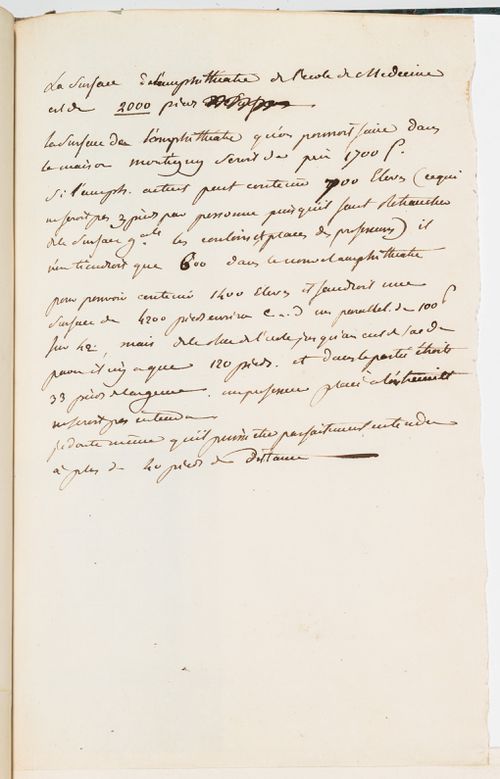 La Surface de l'amphitheatre de l'ecole de Medecine
est de 2000 pieds
la surface de l'amphitheatre qu'on pourroit faire dans
la maison montigny seroit de près 1700 p.
Si l'amph. actuel peut contenir 700 Eleves (ce qui
ne seroit pas 3 pieds par personne puisqu'il faut retrancher
de la surface g.ale les couloirs et places des professeurs) il
n'en tiendroit que 600 dans le nouvel amphitheatre
pour pouvoir contenir 1400 Eleves il faudroit une
surface de 4200 pieds environ c.a.d un parallel. de 100 p
sur 42, mais de la rue de l'ecole jusqu'au cul de sac du
paon il n'y a que 120 pieds. et dans la partie étroite
33 pieds de largeur. un professeur placé à l'extremité
ne seroit pas entendu
je doute même qu'il puisse être parfaitement entendu
à plus de 40 pieds de distance